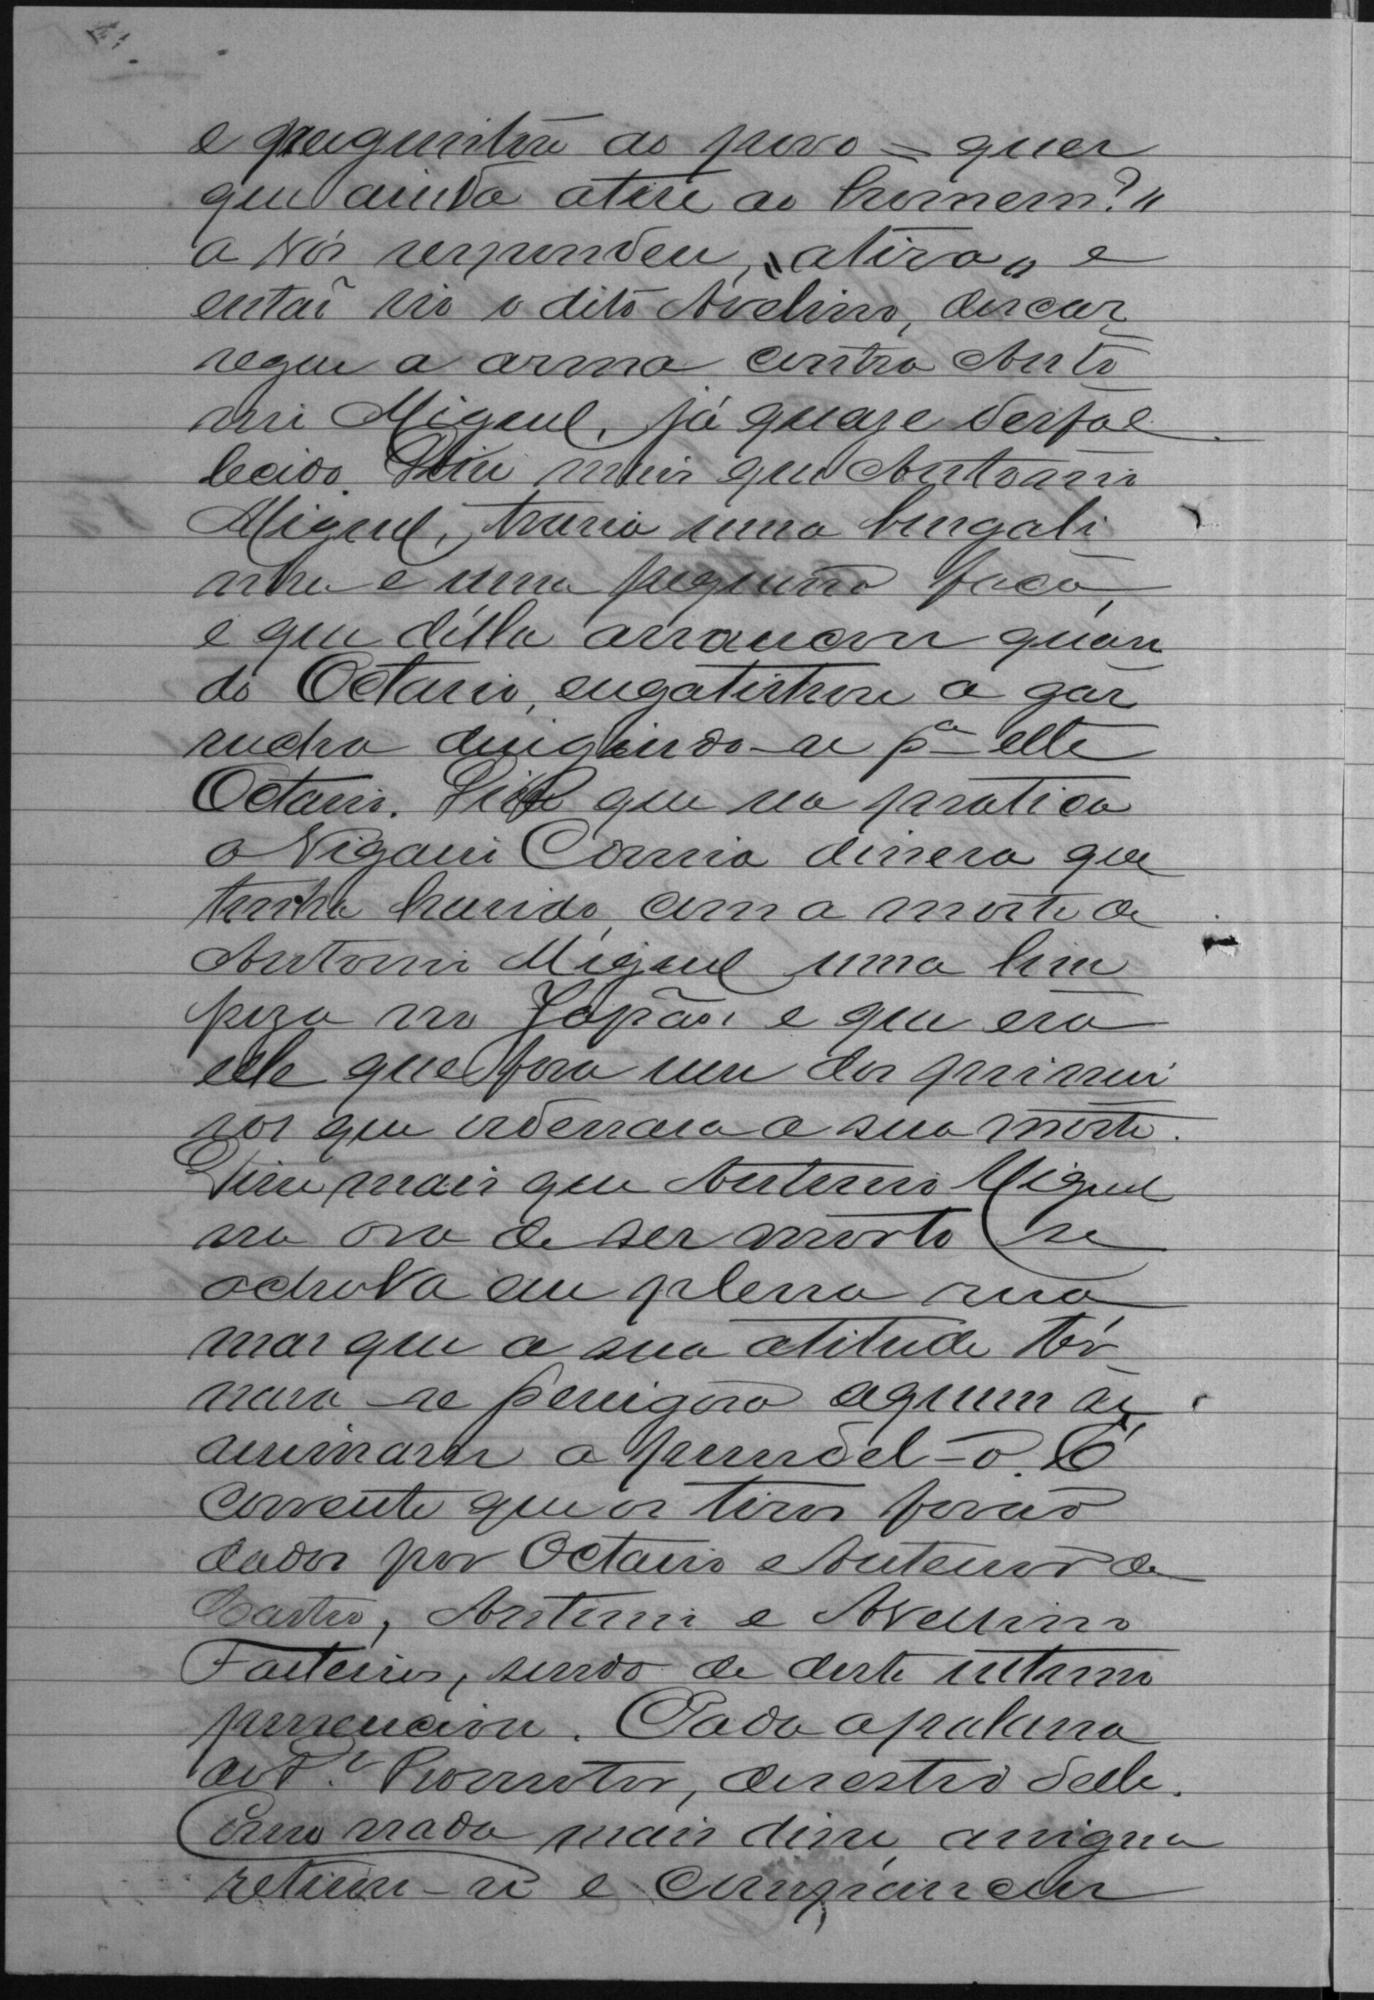 e preguntou ao povo = quer
que ainda atire ao homem?"
a vós respondeu, "atira" e
então vio o dito Avelino, descar-
regar a arma contra Anto-
nio Miguel, já quase desfal-
lecido. Disse mais que Antonio
Miguel, trazia uma bengali-
nha e uma pequena faca,
e que d'élla arrancou quan-
do Octavio, engatilhou a gar-
rucha dirigindo-se pª elle
Octavio. Disse que na pratica
o Vigario Correia dissera que
tinha havido com a morte de
Antonio Miguel uma lim-
peza no Japão, e que era
elle que fora um dos primei-
ros que ordenara a sua morte.
Disse mais que Antonio Miguel
na ora de ser morto se
achava em plena rua
mas que a sua atitude tor-
nara-se perigosa a quem se
a prendel-o. É
corrente que os tiros forão
dados por Octavio e Antenor de
Castro, Antonio e Avellino
sendo de deste ultimo
presenciou. Dada a palavra
ao Dr. Promotor, deixou
Como nada mais disse, assigna
retirou-se e